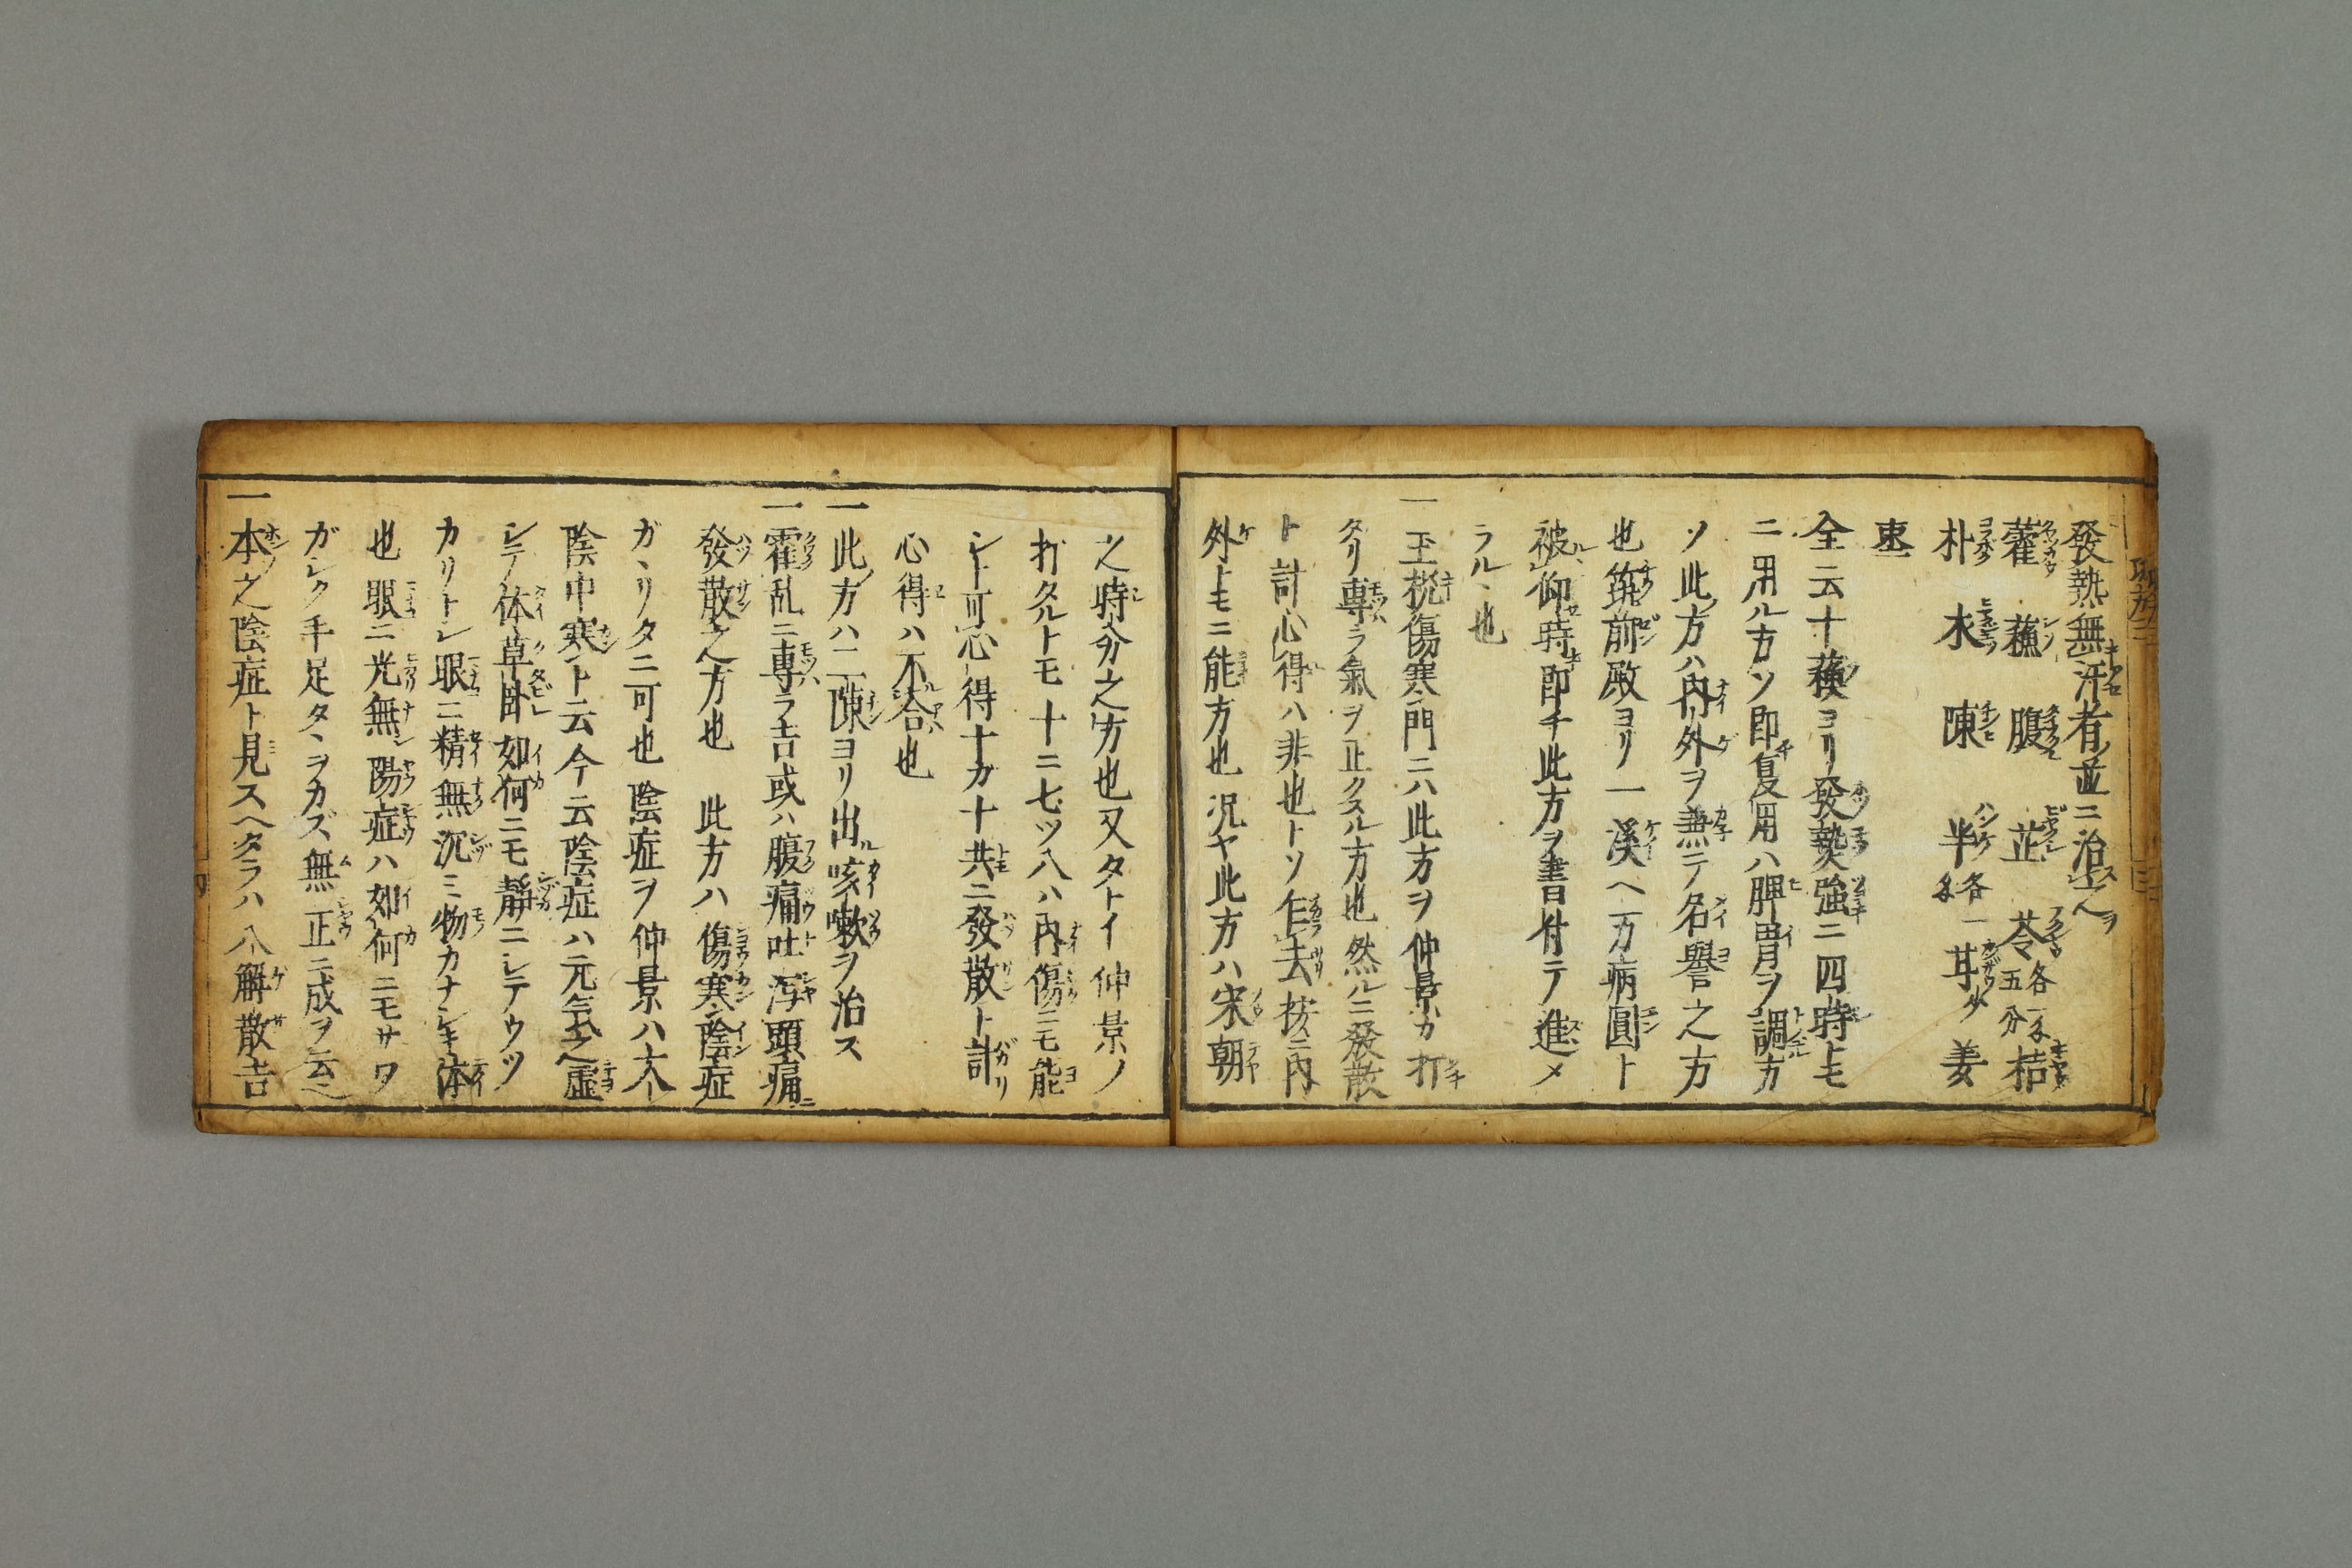 發熱無汗者並ニ治之ヲ
藿 蘓 腹 芷 苓各一匁五分 桔
朴 朮 陳 半各一匁 甘少 姜
棗
全云十蘓ヨリ發熱強ニ四時トモ
ニ用ル方ソ即復用ハ脾胃ヲ調方
ソ此方ハ内外ヲ兼テ名譽之方
也筑前殿ヨリ一溪ヘ万病圓ト
被仰時即チ此方ヲ書付テ進メ
ラル丶也
一玉機傷寒門ニハ此方ヲ仲景カ打
タリ專ラ氣ヲ正クスル方也然ルニ發散
ト計心得ハ非也トソ乍去按ニ内
外トモニ能方也況ヤ此方ハ宋朝
之時分之方也又タトイ仲景ノ
打タルトモ十ニ七ツ八ハ内傷ニモ能
シト可心得十カ十共ニ發散ト計
心得ハ不合也
一此方ハ二陳ヨリ出咳嗽ヲ治ス
一霍乱ニ專ラ吉或ハ腹痛吐瀉頭痛
發散之方也 此方ハ傷寒陰症
ガヽリタニ可也陰症ヲ仲景ハ太
陰中寒ト云今云陰症ハ元氣之虚
シテ体草臥如何ニモ靜ニシテウツ
カリトシ眼ニ精無沉ミ物カナシキ体
也眼ニ光無陽症ハ如何ニモサワ
ガシク手足タヽヲカズ無正ニ成ヲ云之
一本之陰症ト見スヘタラハ八解散吉